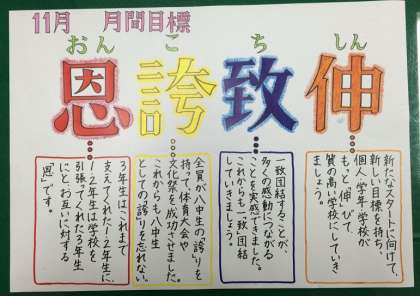 11月　月間目標
しん
伸
ち
致
こ
誇
おん
恩
新たなスタートに向けて、
新しい目標を持ち、
個人・学年・学校が
もっと伸びて、
質の高い学校にしていき
ましょう。
一致団結することが、
多くの感動につながる
ことを実感できました。
これからも一致団結
していきましょう。
全員が八中生の「誇り」を
持って、体育大会や
文化祭を成功させました。
これからも八中生
としての「誇り」を忘れない。
3年生はこれまで
支えてくれた1・2年生に、
1・2年生は学校を
引張ってくれた3年生
にとお互いに対する
「恩」です。